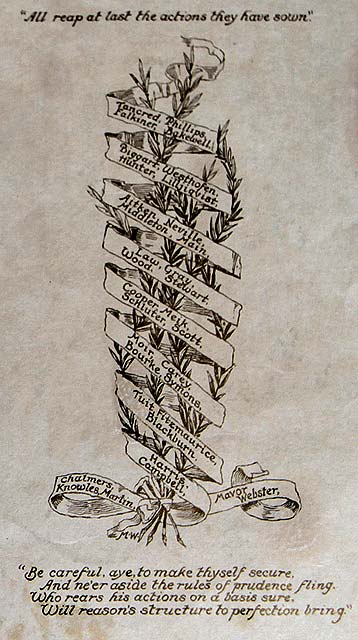 "All reap at last the actions they have sown."
Tancred, Phillips,
Falkiner, Bakewell.
Biggart, Westhofen,
Hunter, Lilliquist.
Arthur, Neville,
Middleton, Main.
Law, Gray,
Wood, Stewart.
Cooper, Meik,
Schluter, Scott.
Moir, Carey,
Bourke, Symons.
Tuit, Fitzmaurice,
Blackburn.
Harris,
Campbell.
Chalmers,
Knowles, Martin.
Mavor,
Webster.
M.W.
"Be careful, aye, to make thyself secure,
And ne'er aside the rules of prudence fling.
Who rears his actions on a basis sure,
Will reason's structure to perfection bring."